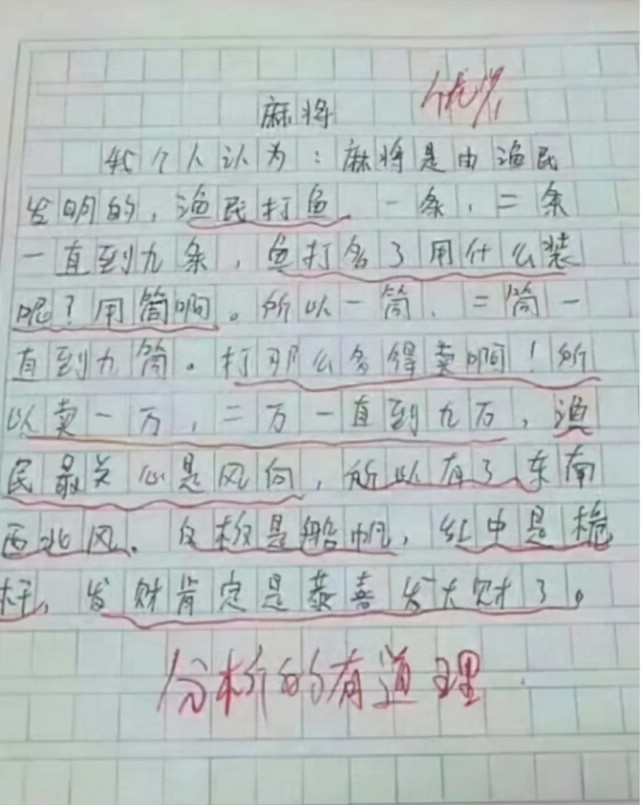 麻将
优
个人认为：麻将是由渔民
发明的，渔民打鱼，一条，二条
一直到九条，鱼打多了用什么装
呢？用筒啊。所以一筒，二筒一
直到九筒。打那么多得卖啊！所
以卖一万，二万一直到九万，渔
民最关心是风向，所以有了东南
西北风。白板是船帆，红中是桅
杆，发财肯定是恭喜发大财了。
分析的有道理